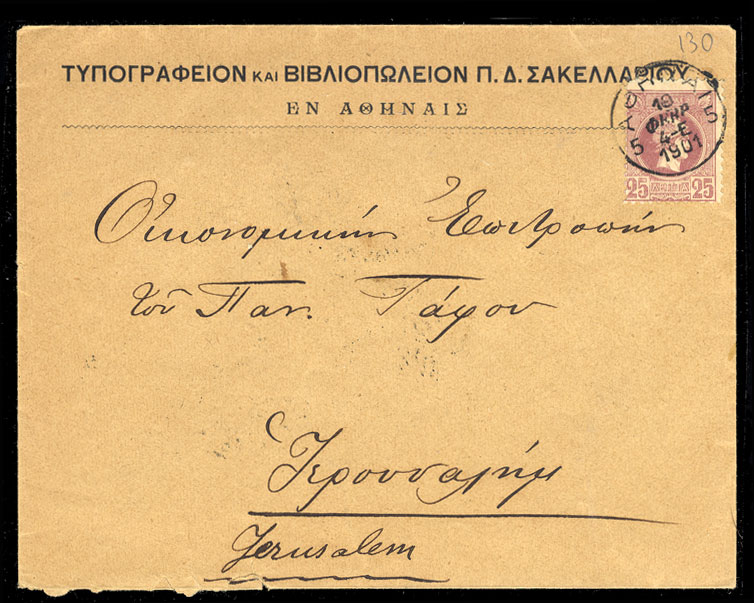 130
ΤΥΠΟΓΡΑΦΕΙΟΝ ΚΑΙ ΒΙΒΛΙΟΠΩΛΕΙΟΝ Π. Δ. ΣΑΚΕΛΛΑΡΙΟΥ
ΕΝ ΑΘΗΝΑΙΣ
ΑΘΗΝΑΙ
5 5
19
ΦΕΒΡ
4-Ε
1901
25 ΛΕΠΤΑ 25
Οἰκονομικὴν Ἐπιτροπὴν
τοῦ Παν. Τάφου
Ἱερουσαλὴμ
Jerusalem